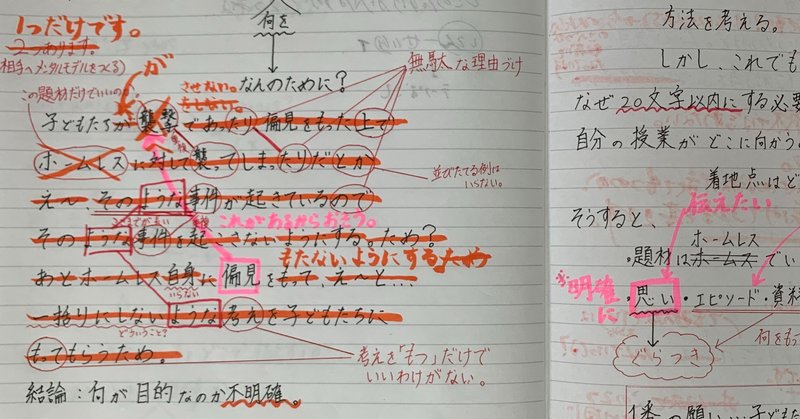 何を
1つだけです。
2つあります。
相手へメンタルモデルをつくる)
この題材だけでいいの?
が
させない。
をしない。
なんのために?
無駄な理由づけ
子どもたちが襲撃であったり偏見をもった上で
ホームレスに対して襲ってしまったりだとか
並びたてる例は
いらない。
え〜、そのような事件が起きているので
これがあるからおそう。
そのような事件を起こさないようにする。ため?
もたないようにするため
あとホームレス自身に偏見をもって、え〜と…
いらない
一括りにしないような考えを子どもたちに
どういうこと?
もってもらうため。
考えを「もつ」だけで
いいわけがない。
結論:何が目的なのか不明確。
方法を考える。
しかし、これでも
なぜ20文字以内にする必要
自分の授業がどこに向かう
着地点はど
そうすると、
伝えたい
ホームレス
・題材はホームスでい
※明確に
・思い・エピソード・資料
どらつき
何をもっ
1番の願い…子ども